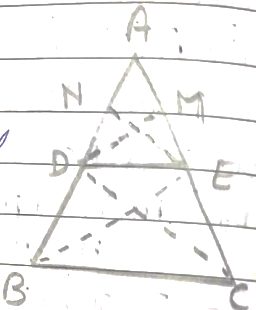 A
N M
D E
B C